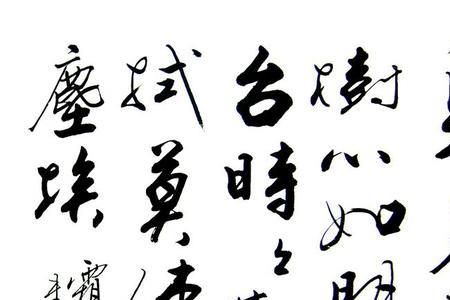 樹心如明
台時々
拭莫使
塵埃